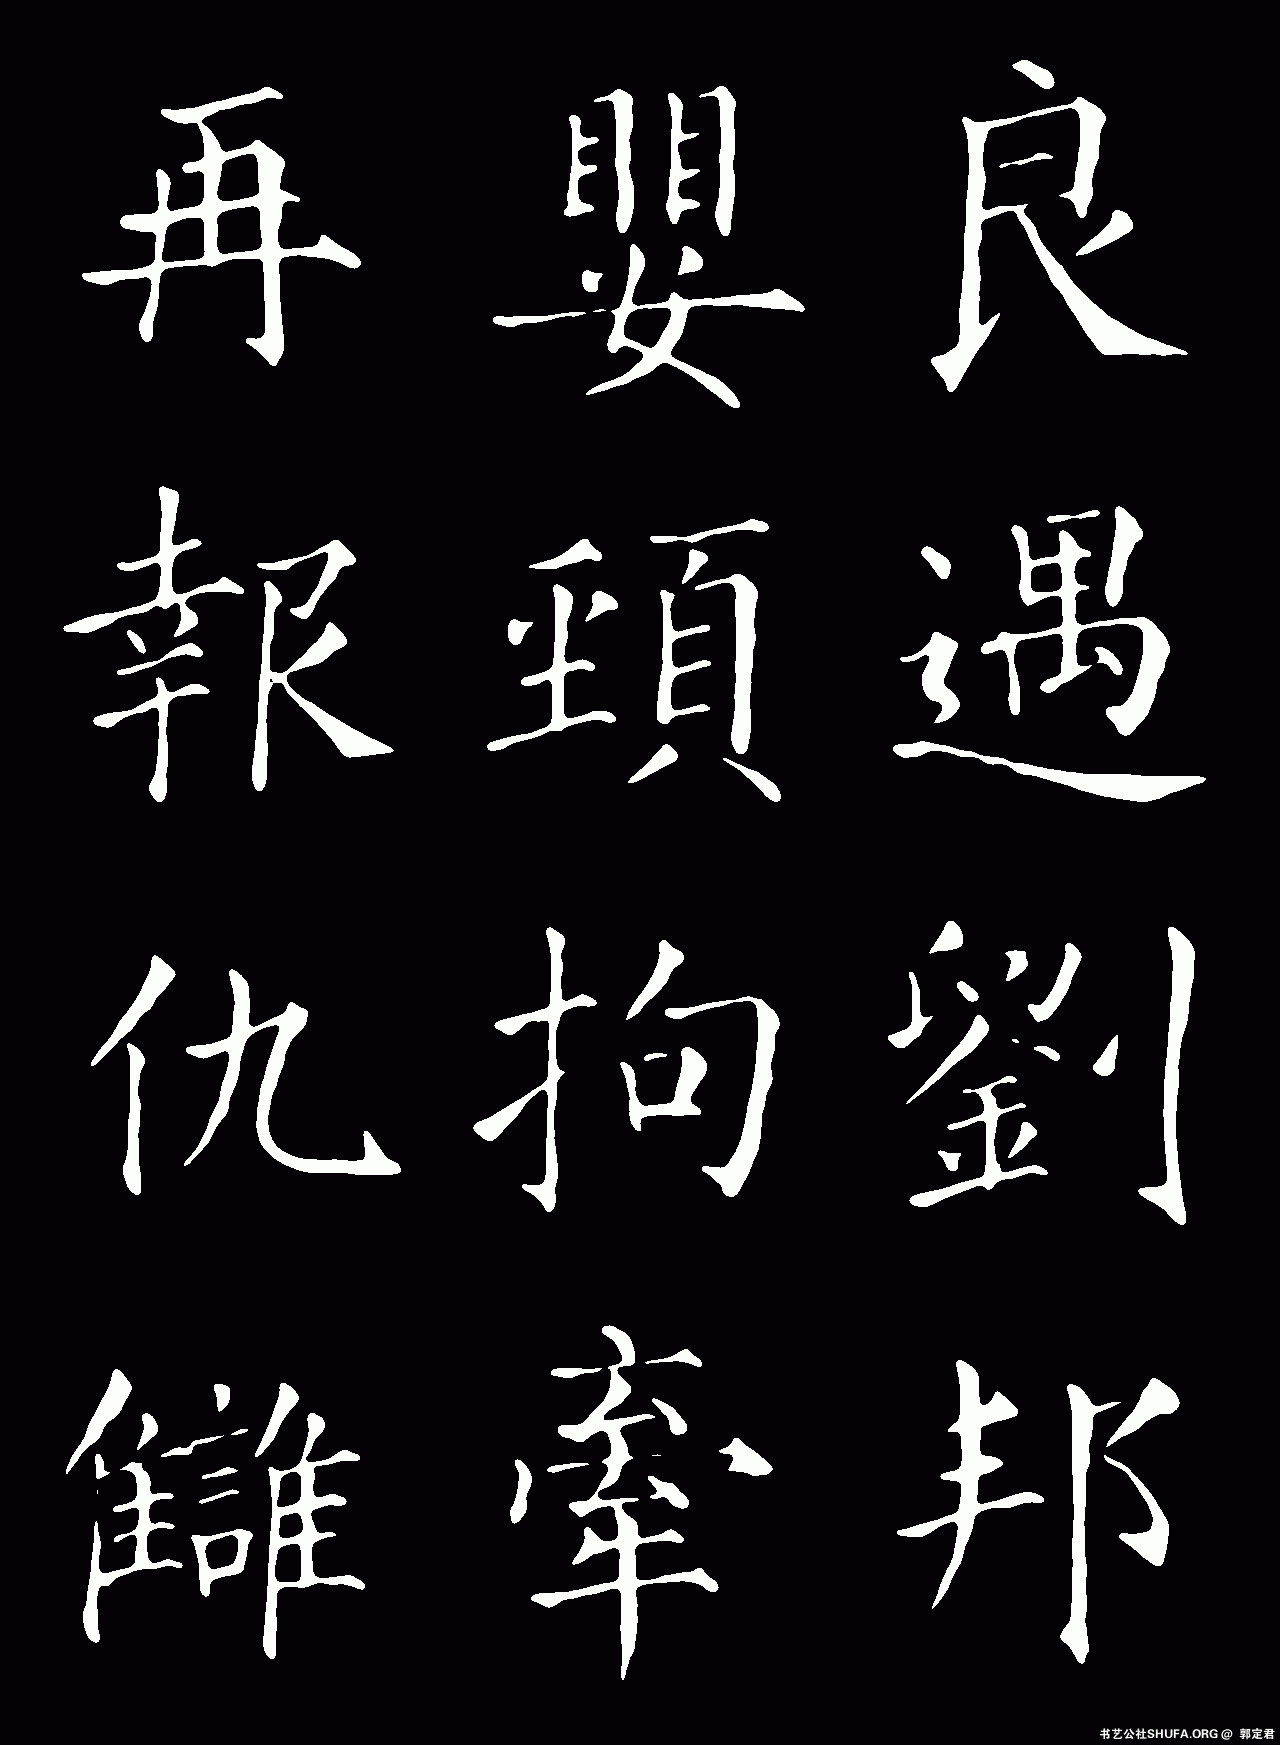 良遇劉邦
嬰頸拘牽
再報仇讎
书艺公社SHUFA.ORG @ 郭定君